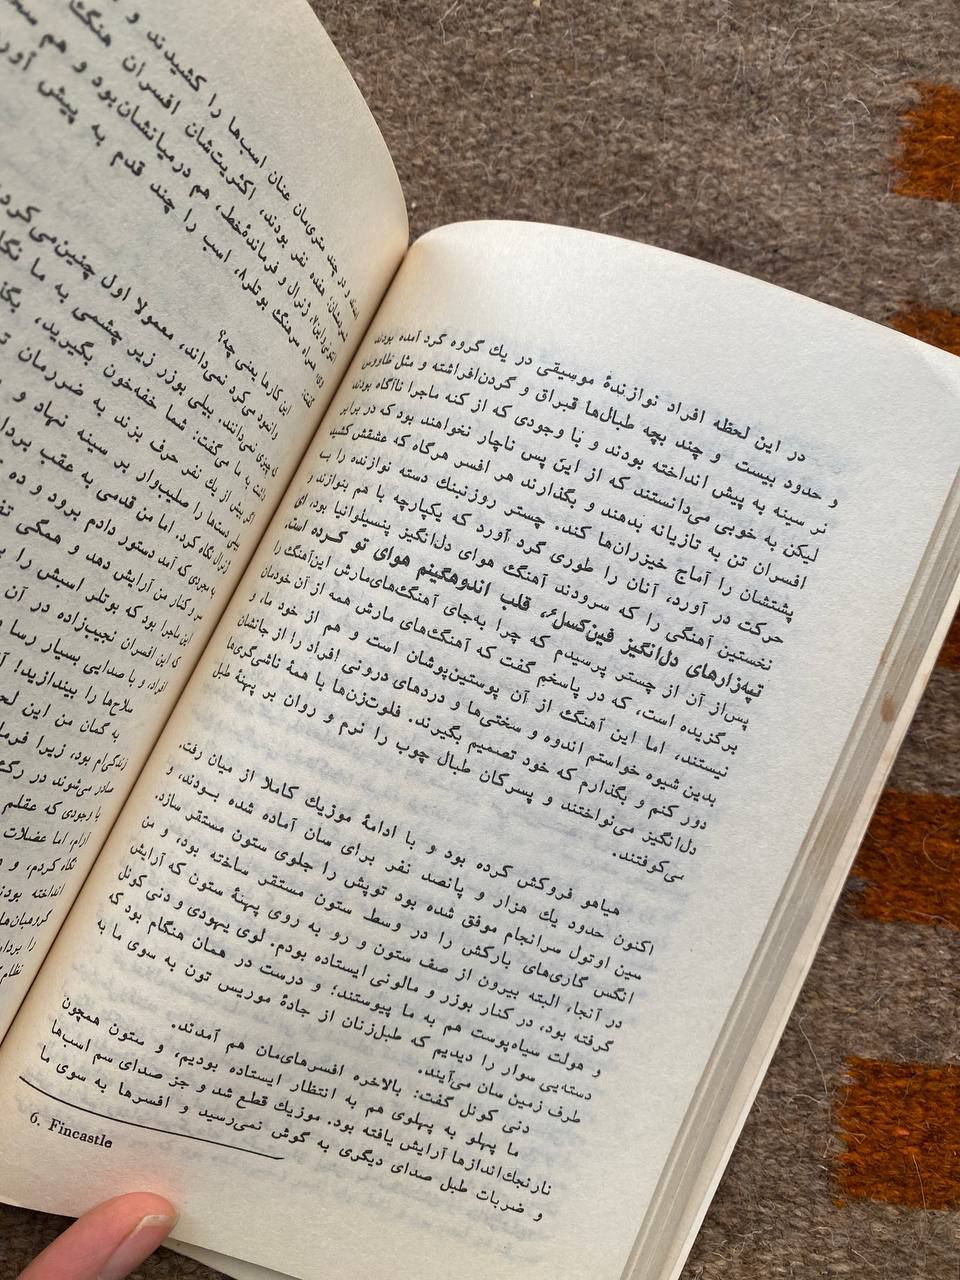 در این لحظه افراد نوازندهٔ موسیقی در یك گروه گرد آمده بودند
و حدود بیست و چند بچه طبال‌ها قبراق و گردن‌افراشته و مثل طاووس
نر سینه به پیش انداخته بودند و با وجودی که از کنه ماجرا ناآگاه بودند
لیکن به خوبی می‌دانستند که از این پس ناچار نخواهند بود که در برابر
افسران تن به تازیانه بدهند و بگذارند هر افسر هرگاه که عشقش کشید
پشتشان را آماج خیزران‌ها کند. چستر روزنبنك دسته نوازنده را ب
حرکت در آورد، آنان را طوری گرد آورد که یکپارچه با هم بنوازند و
نخستین آهنگی را که سرودند آهنگ هوای دل‌انگیز پنسیلوانیا بود، ای
تپه‌زارهای دل‌انگیز فین‌کسل۶، قلب اندوهگینم هوای تو کرده است.
پس‌از آن از چستر پرسیدم که چرا به‌جای آهنگ‌های‌مارش این‌آهنگ را
برگزیده است، که در پاسخم گفت که آهنگ‌های مارش همه از آن خودمان
نیستند، اما این آهنگ از آن پوستین‌پوشان است و هم از خود ما، و
بدین شیوه خواستم اندوه و سختی‌ها و دردهای درونی افراد را از جانشان
دور کنم و بگذارم که خود تصمیم بگیرند. فلوت‌زن‌ها با همهٔ ناشی‌گری‌ها
دل‌انگیز می‌نواختند و پسرکان طبال چوب را نرم و روان بر پهنهٔ طبل
می‌کوفتند.
هیاهو فروکش کرده بود و با ادامهٔ موزیك کاملا از میان رفت.
اکنون حدود یك هزار و پانصد نفر برای سان آماده شده بودند، و
سین اوتول سرانجام موفق شده بود توپش را جلوی ستون مستقر سازد.
انگس گاری‌های بارکش را در وسط ستون مستقر ساخته بود، و من
در آنجا، البته بیرون از صف ستون و رو به روی پهنهٔ ستون که آرایش
گرفته بود، در کنار بوزر و مالونی ایستاده بودم. لوی یهودی و دنی کونل
و هولت سیاه‌پوست هم به ما پیوستند؛ و درست در همان هنگام بود که
دسته‌یی سوار را دیدیم که طبل‌زنان از جادهٔ موریس تون به سوی ما به
طرف زمین سان می‌آیند.
دنی کونل گفت: بالاخره افسرهای‌مان هم آمدند.
ما پهلو به پهلوی هم به انتظار ایستاده بودیم، و ستون همچون
نارنجك‌اندازها آرایش یافته بود. موزیك قطع شد و جز صدای سم اسب‌ها
و ضربات طبل صدای دیگری به گوش نمی‌رسید و افسرها به سوی ما
6. Fincastle
عنان اسب‌ها را کشیدند و
اکثریت‌شان افسران هنگ
ژنرال و فرماندهٔ‌خط، هم درمیانشان‌بود و هم
همراه سرهنگ بوتلر۸، اسب را چند قدم به پیش
این کارها یعنی چه؟
وانمود می‌کرد نمی‌داند، معمولا اول چنین‌می‌کرد
چیزی نمی‌دانند. بیلی بوزر زیر چشمی به ما
به ما می‌گفت: شما خفه‌خون بگیرید،
اگر بیش از یك نفر حرف بزند به ضررمان
دست‌ها را صلیب‌وار بر سینه نهاد و
ژنرال نگاه کرد، اما من قدمی به عقب
که آمد دستور دادم برود و ده
و کنار من آرایش دهد و همگی
این ماجرا بود که بوتلر اسبش را
که این افسران نجیب‌زاده در آن
افراد، و با صدایی بسیار رسا و
سلاح‌ها را بیندازید!
به گمان من این
زندگی‌ام بود، زیرا
صادر می‌شوند در
با وجودی که عقلم
آرام، اما عضلات
نگاه کردم، و
انداخته بودند
گروهبان‌ها
را